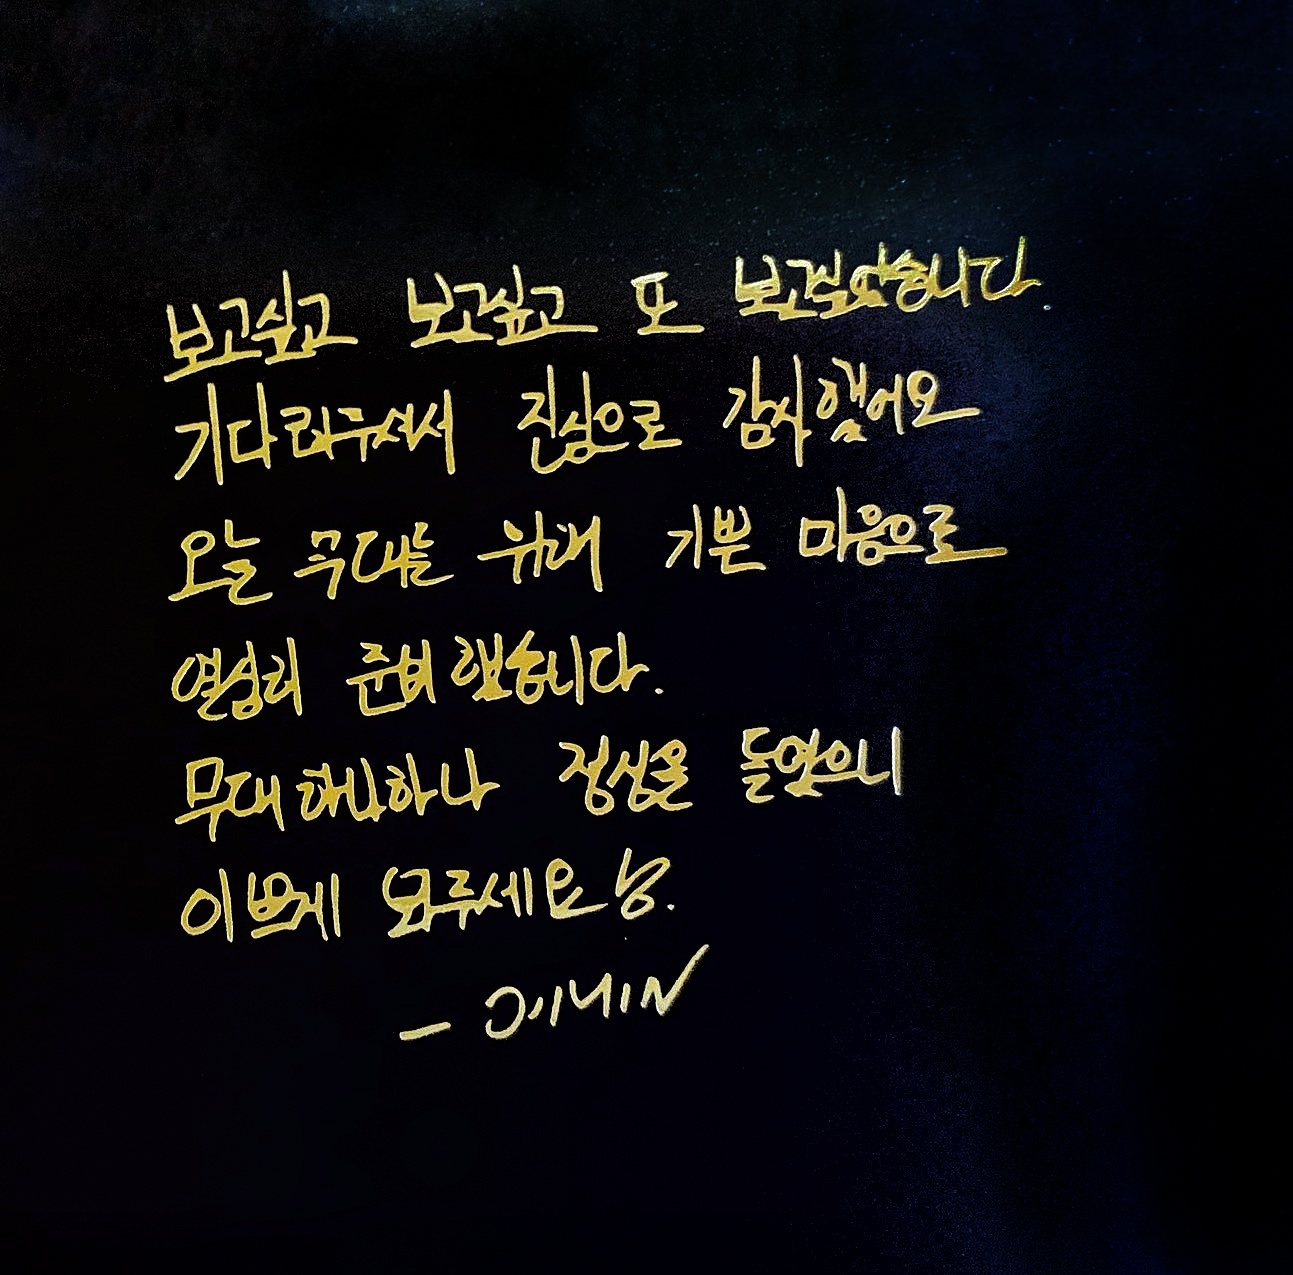 보고싶고 보고싶고 또 보고싶었습니다.
기다려주셔서 진심으로 감사했어요
오늘 무대를 위해 기쁜 마음으로
열심히 준비했습니다.
무대 하나하나 정성을 들였으니
이쁘게 봐주세요
- JIMIN